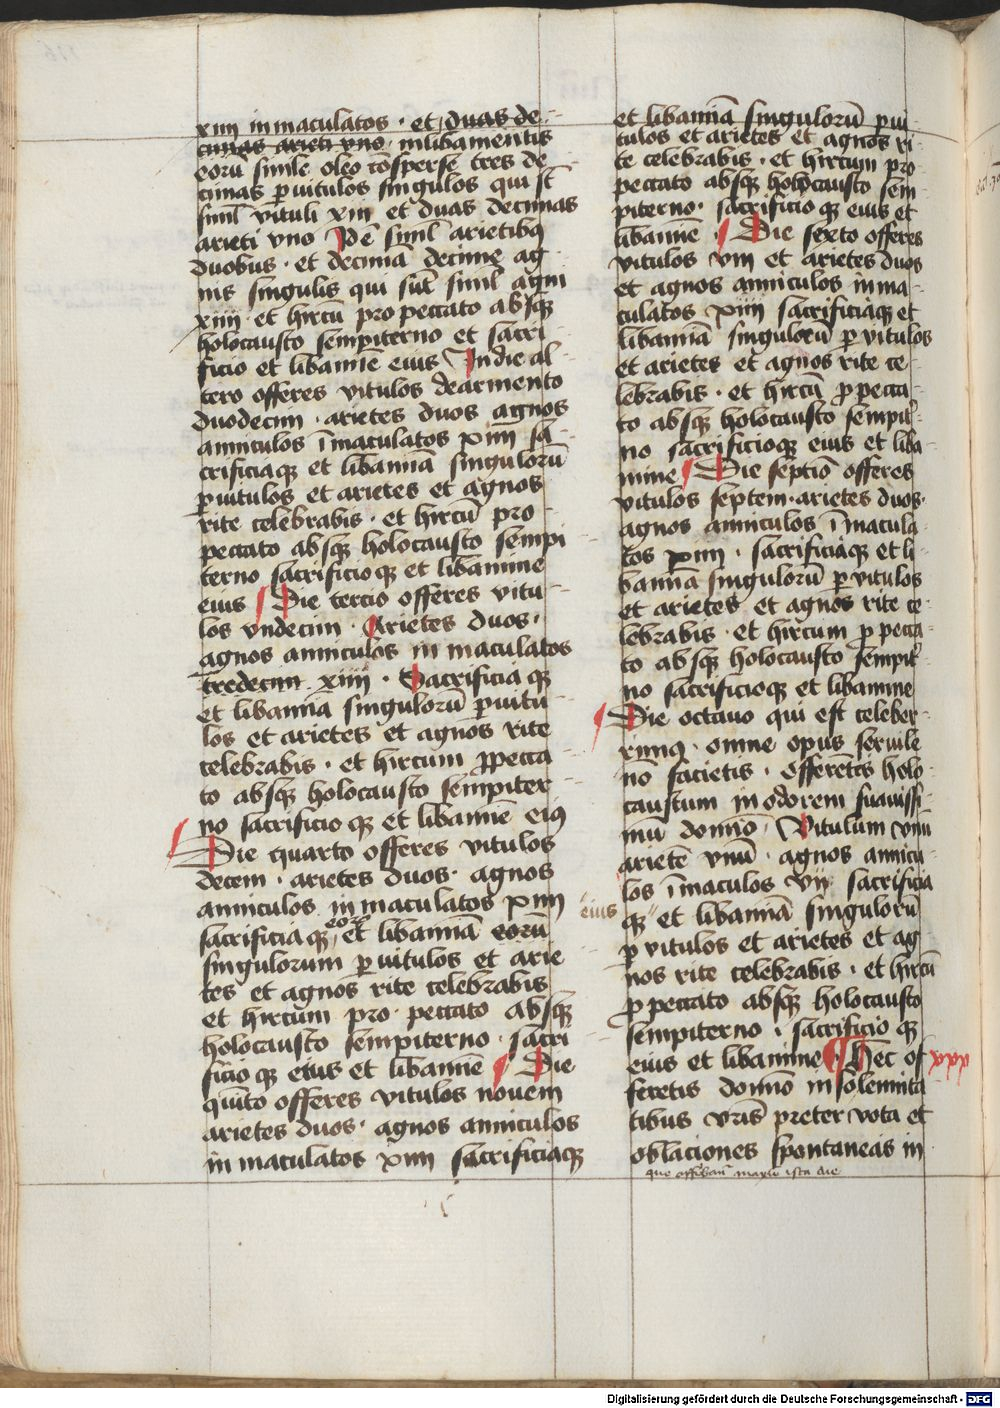 xiiii inmaculatos · et duas de
cimas arieti vno · inlibamentis
eorū simile oleo cōsperse tres de
cimas ꝑ uitulos singulos qui sūt
siml̄ vituli xiii et duas decimas
arieti vno Idē siml̄ arietibꝫ
duobus · et decimā decime ag
nis singulis qui sūt siml̄ agni
xiiii · et hircū pro peccato absqꝫ
holocausto sempiterno et sacri
ficio et libamīe eius In die al
tero offeres vitulos dearmento
duodecim · arietes duos agnos
anniculos īmaculatos xiiii sa
crificiaqꝫ et libamīa singulorū
ꝑ uitulos et arietes et agnos
rite celebrabis · et hircū pro
peccato absqꝫ holocausto sempi
terno sacrificio qꝫ et libamine
eius Die tercio offeres vitu
los vndecim · Arietes duos ·
agnos anniculos in maculatos
tredecim xiiii · Sacrificia qꝫ
et libamīa singulorū ꝑ uitu
los et arietes et agnos rite
celebrabis · et hircum ꝓ pecca
to absqꝫ holocausto sempiter
no sacrificio qꝫ et libamīe eiꝰ
Die quarto offeres vitulos
decem · arietes duos · agnos
anniculos in maculatos xiiii
sacrificia qꝫ eoꝝ et libamīa eorū
singulorum ꝑ uitulos et arie
tes et agnos rite celebrabis
et hircum pro peccato absqꝫ
holocausto sempiterno · sacri
ficio qꝫ eius et libamīe Die
quīto offeres vitulos nouem
arietes duos · agnos anniculos
in maculatos xiiii sacrificiaqꝫ
et libamīa singulorū ꝑ ui
tulos et arietes et agnos ri
te celebrabis · et hircum pro
peccato absqꝫ holocausto sem
piterno · sacrificio qꝫ eius et
libamīe · Die sexto offeres
vitulos viii et arietes duos
et agnos anniculos in ma
culatos xiiii sacrificiaqꝫ et
libamīa singulorū ꝑ vitulos
et arietes et agnos rite ce
lebrabis · et hircū ꝓ pecca
to absqꝫ holocausto sempit͛
no sacrificioqꝫ eius et liba
mine Die septīo offeres
vitulos septem · arietes duos ·
agnos anniculos īmacula
tos xiiii · sacrificiaqꝫ et li
bamīa singulorū ꝑ vitulos
et arietes et agnos rite ce
lebrabis · et hircum ꝓ pecca
to absqꝫ holocausto sempit͛
no sacrificioqꝫ et libamine
Die octauo qui est celeber
rimꝰ · omne opus seruile
nō facietis · offerentes holo
caustum in odorem suauissi
mū domīo Vitulum vnū
arietē vnū · agnos annicu
los īmaculos vii sacrificia
eius qꝫ et libamīa singulorū
ꝑ vitulos et arietes et ag
nos rite celebrabis · et hircū
ꝓ peccato absqꝫ holocausto
sempiterno · sacrificio qꝫ
eius et libamine · Hec of xxx
feretis domīo in solennita
tibus vr̄is preter vota et
oblaciones spontaneas in
Digitalisierung gefördert durch die Deutsche Forschungsgemeinschaft - DFG